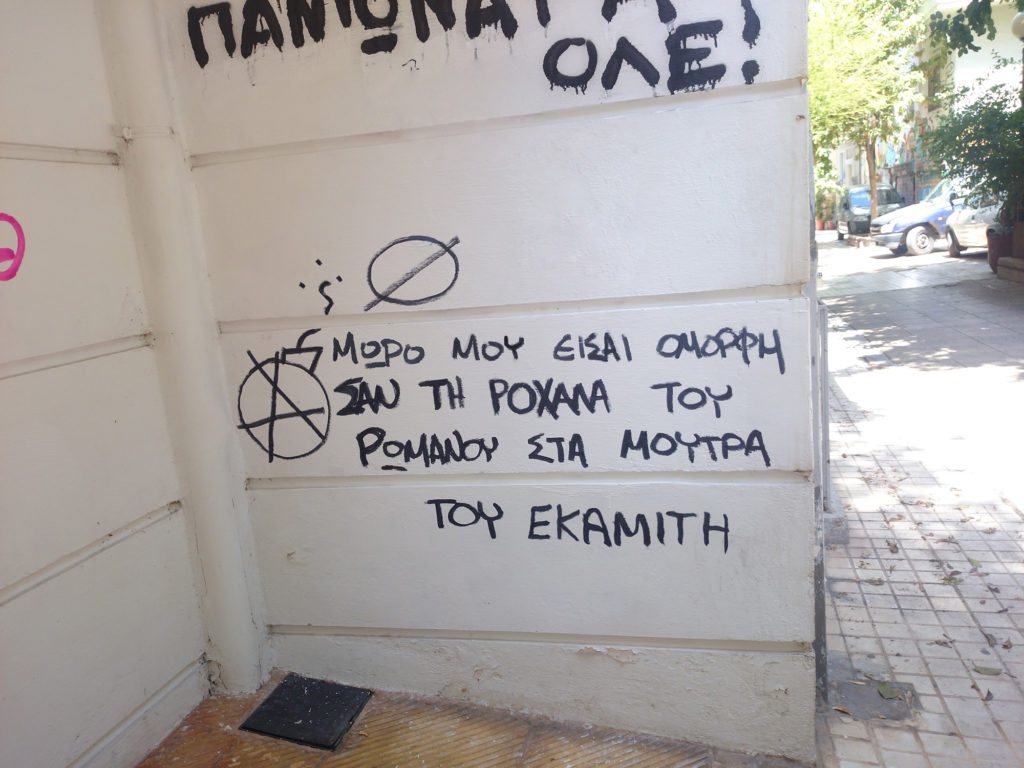 ΠΑΝΙΩΝΑΡΑ!
ΟΛΕ!
ΜΩΡΟ ΜΟΥ ΕΙΣΑΙ ΟΜΟΡΦΗ
ΣΑΝ ΤΗ ΡΟΧΑΛΑ ΤΟΥ
ΡΩΜΑΝΟΥ ΣΤΑ ΜΟΥΤΡΑ
ΤΟΥ ΕΚΑΜΙΤΗ